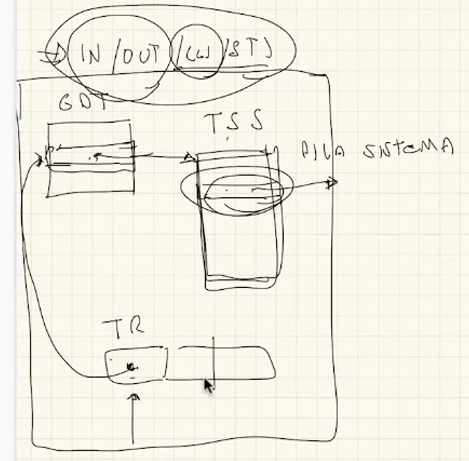 IN / OUT / CLI / STI
GDT
TSS
PILA SISTEMA
TR